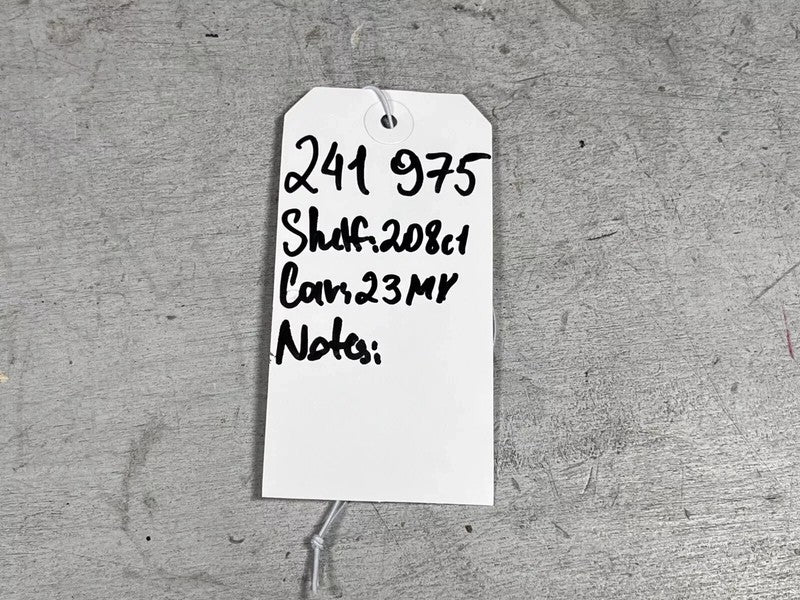 241 975
Shelf: 208c1
Car: 23MY
Notes: